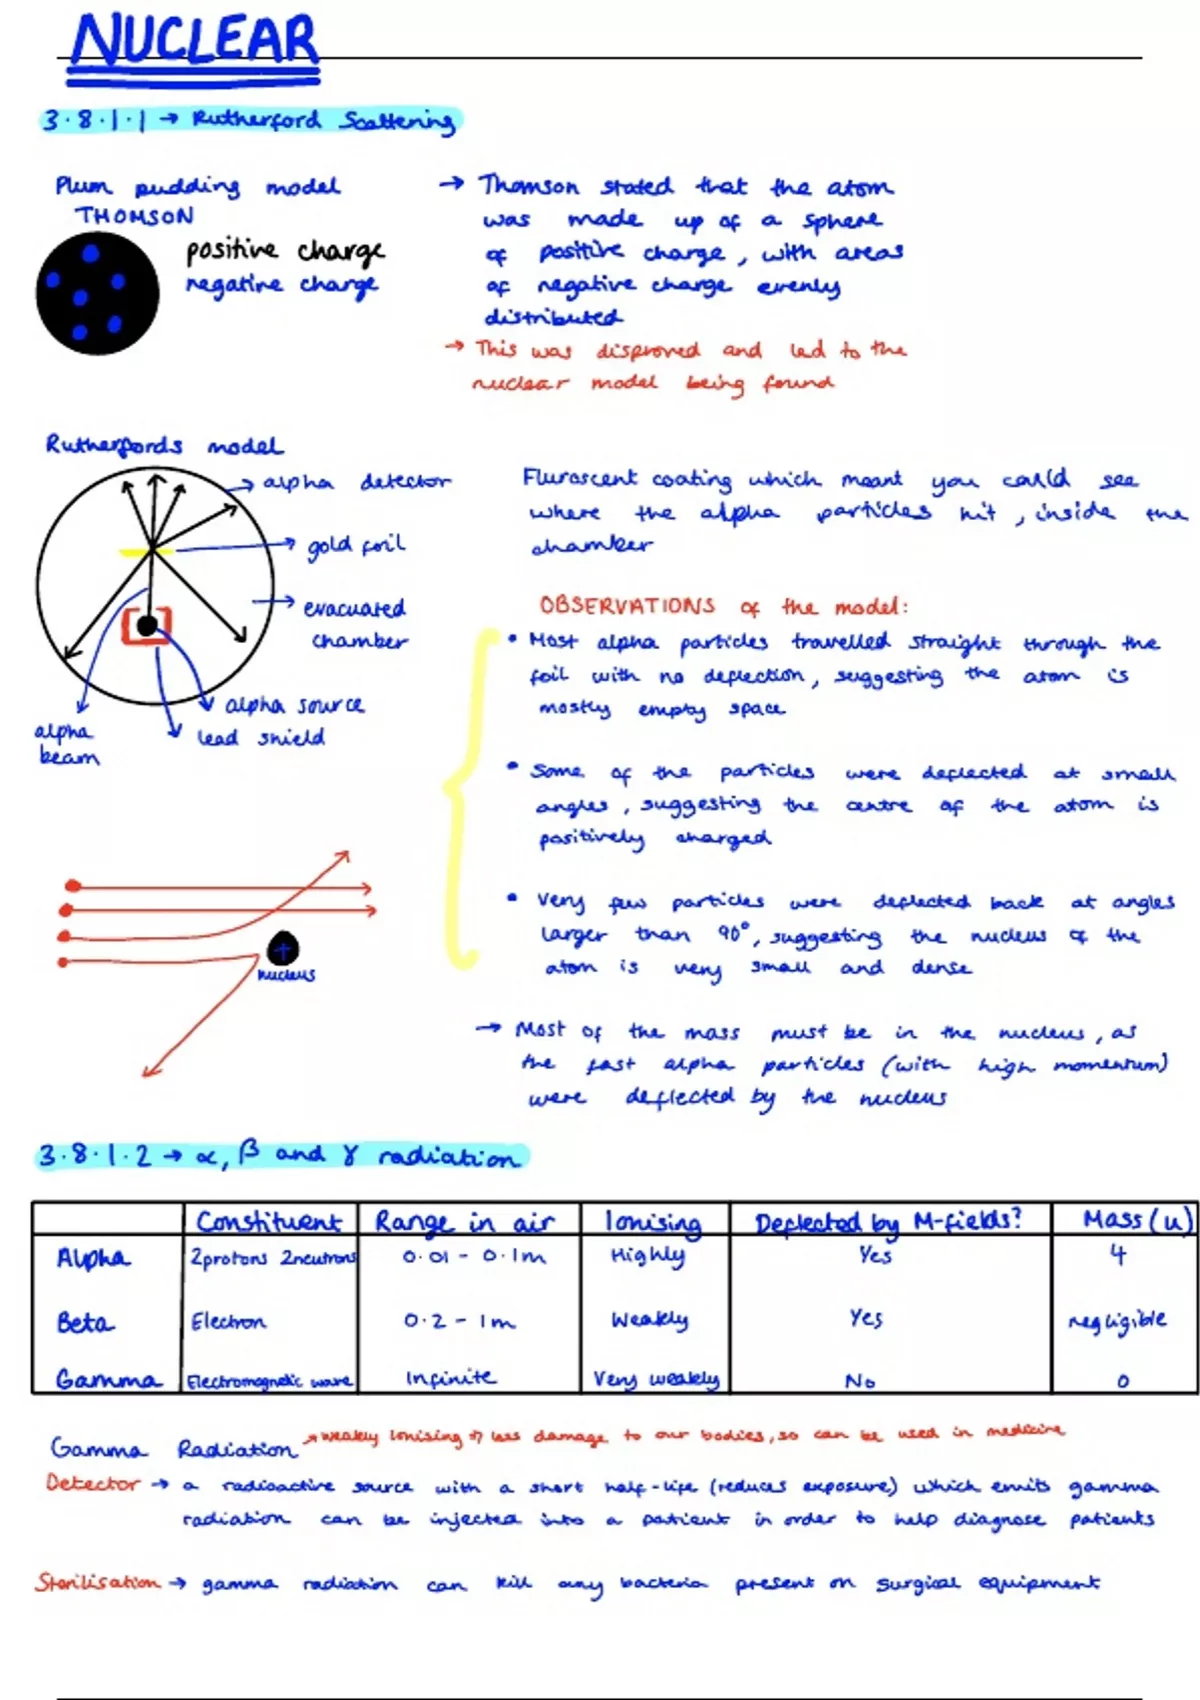 NUCLEAR
3.8.1.1 → Rutherford Scattering
Plum pudding model
THOMSON
positive charge
negative charge
→ Thomson stated that the atom
was made up of a sphere
of positive charge, with areas
of negative charge evenly
distributed
→ This was disproved and led to the
nuclear model being found
Rutherfords model
alpha detector
gold foil
evacuated
chamber
alpha source
lead shield
alpha
beam
Fluroscent coating which meant you could see
where the alpha particles hit, inside the
chamber
OBSERVATIONS of the model:
• Most alpha particles travelled straight through the
foil with no deflection, suggesting the atom is
mostly empty space
• Some of the particles were deflected at small
angles, suggesting the centre of the atom is
positively charged
• Very few particles were deflected back at angles
larger than 90°, suggesting the nucleus of the
atom is very small and dense
+
nucleus
→ Most of the mass must be in the nucleus, as
the fast alpha particles (with high momentum)
were deflected by the nucleus
3.8.1.2 → α, β and γ radiation
Constituent Range in air Ionising Deflected by M-fields? Mass (u)
Alpha 2protons 2neutrons 0.01 - 0.1m Highly Yes 4
Beta Electron 0.2 - 1m Weakly Yes negligible
Gamma Electromagnetic wave Infinite Very weakly No 0
Gamma Radiation → weakly ionising → less damage to our bodies, so can be used in medicine
Detector → a radioactive source with a short half-life (reduces exposure) which emits gamma
radiation can be injected into a patient in order to help diagnose patients
Sterilisation → gamma radiation can kill any bacteria present on surgical equipment